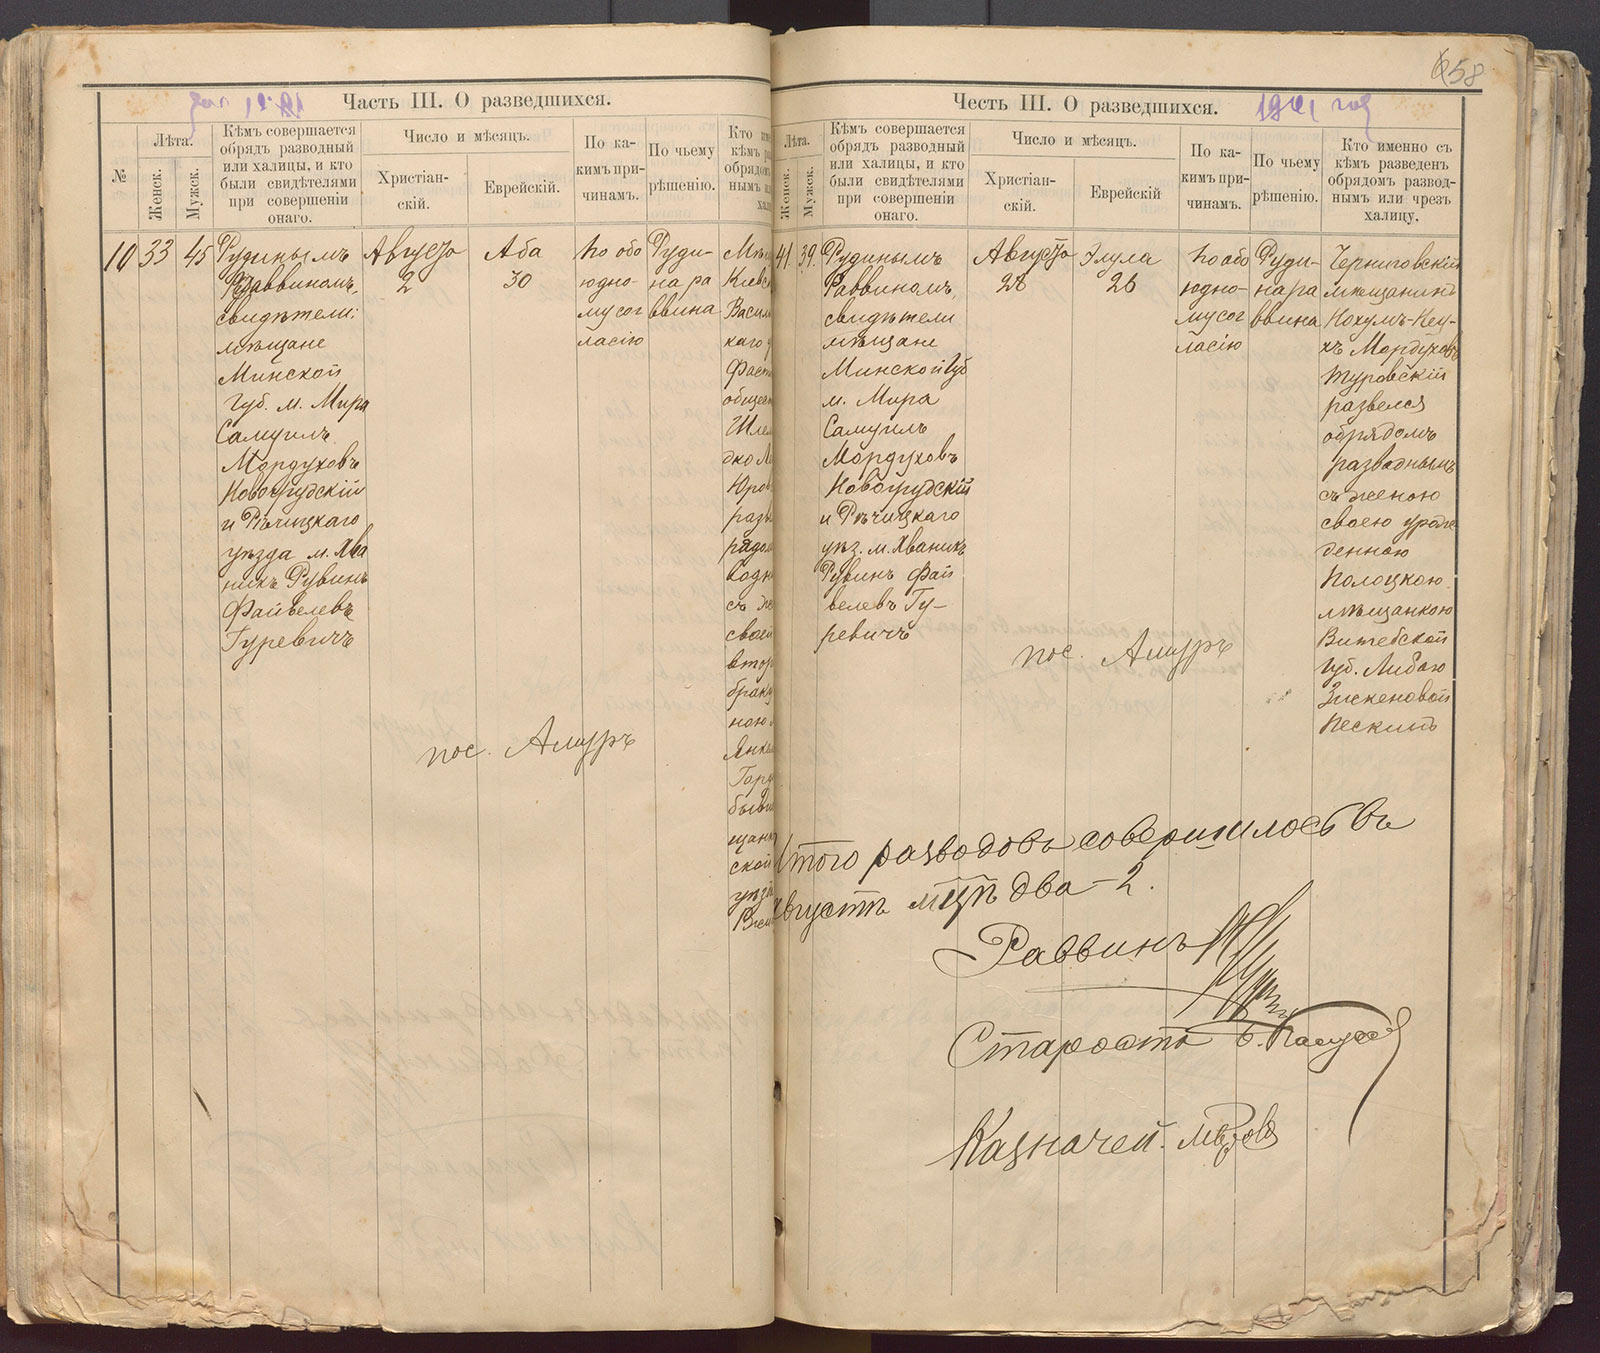 Часть III. О разведшихся.
№
Лѣта.
Женск.
Мужск.
Кѣмъ совершается
обрядъ разводный
или халицы, и кто
были свидѣтелями
при совершеніи
онаго.
Число и мѣсяцъ.
Христіан-
скій.
Еврейскій.
По ка-
кимъ при-
чинамъ.
По чьему
рѣшенію.
Кто име
кѣмъ ра
обрядом
нымъ
хал
10
33
45
Рудинымъ
Раввиномъ,
свидѣтели:
мѣщане
Минской
Губ. м. Мира
Самуилъ
Мордуховъ
Новогрудскій
и Рѣчицкаго
уѣзда м. Хва
никъ Рувинъ
Файвелевъ
Гуревичъ
Августа
2
Аба
30
по обо
юдно-
му сог
ласію
Руди-
на ра
ввина
Мѣщ
Кіевск
Васил
каго
Фаст
общест
Шле
дко
Юров
разв
рядом
водн
съ же
своей
втор
брак
ною
Янк
Гор
бывш
щанк
ской
уѣз
пос. Амуръ
58
Честь III. О разведшихся.
1901 год
Лѣта.
Женск.
Мужск.
Кѣмъ совершается
обрядъ разводный
или халицы, и кто
были свидѣтелями
при совершеніи
онаго.
Число и мѣсяцъ.
Христіан-
скій.
Еврейскій
По ка-
кимъ при-
чинамъ.
По чьему
рѣшенію.
Кто именно съ
кѣмъ разведенъ
обрядомъ развод-
нымъ или чрезъ
халицу.
41
39.
Рудинымъ
Раввиномъ,
свидѣтели
мѣщане
Минской Губ
м. Мира
Самуилъ
Мордуховъ
Новогрудскій
и Рѣчицкаго
уѣз. м. Хваникъ
Рувинъ Фай
велевъ Гу-
ревичъ
Августа
28
Элула
26
по обо
юдно-
му сог
ласію
Руди-
на ра
ввина
Черниговскій
мѣщанинъ
Нохумъ-Кеу-
хъ Мордухов
Туровскій
развелся
обрядомъ
разводнымъ
съ женою
своею урож
денною
Полоцкою
мѣщанкою
Витебской
Губ. Либаю
Зискеновой
Пескинъ
пос. Амуръ
Итого разводовъ совершилось въ
Августѣ м-цѣ два-2.
Раввинъ
Староста
Казначей.